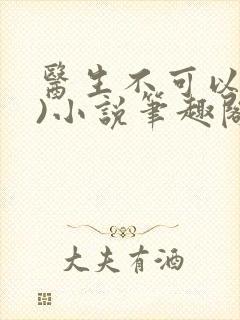 醫生不可以
)小說筆趣閣
大夫有酒